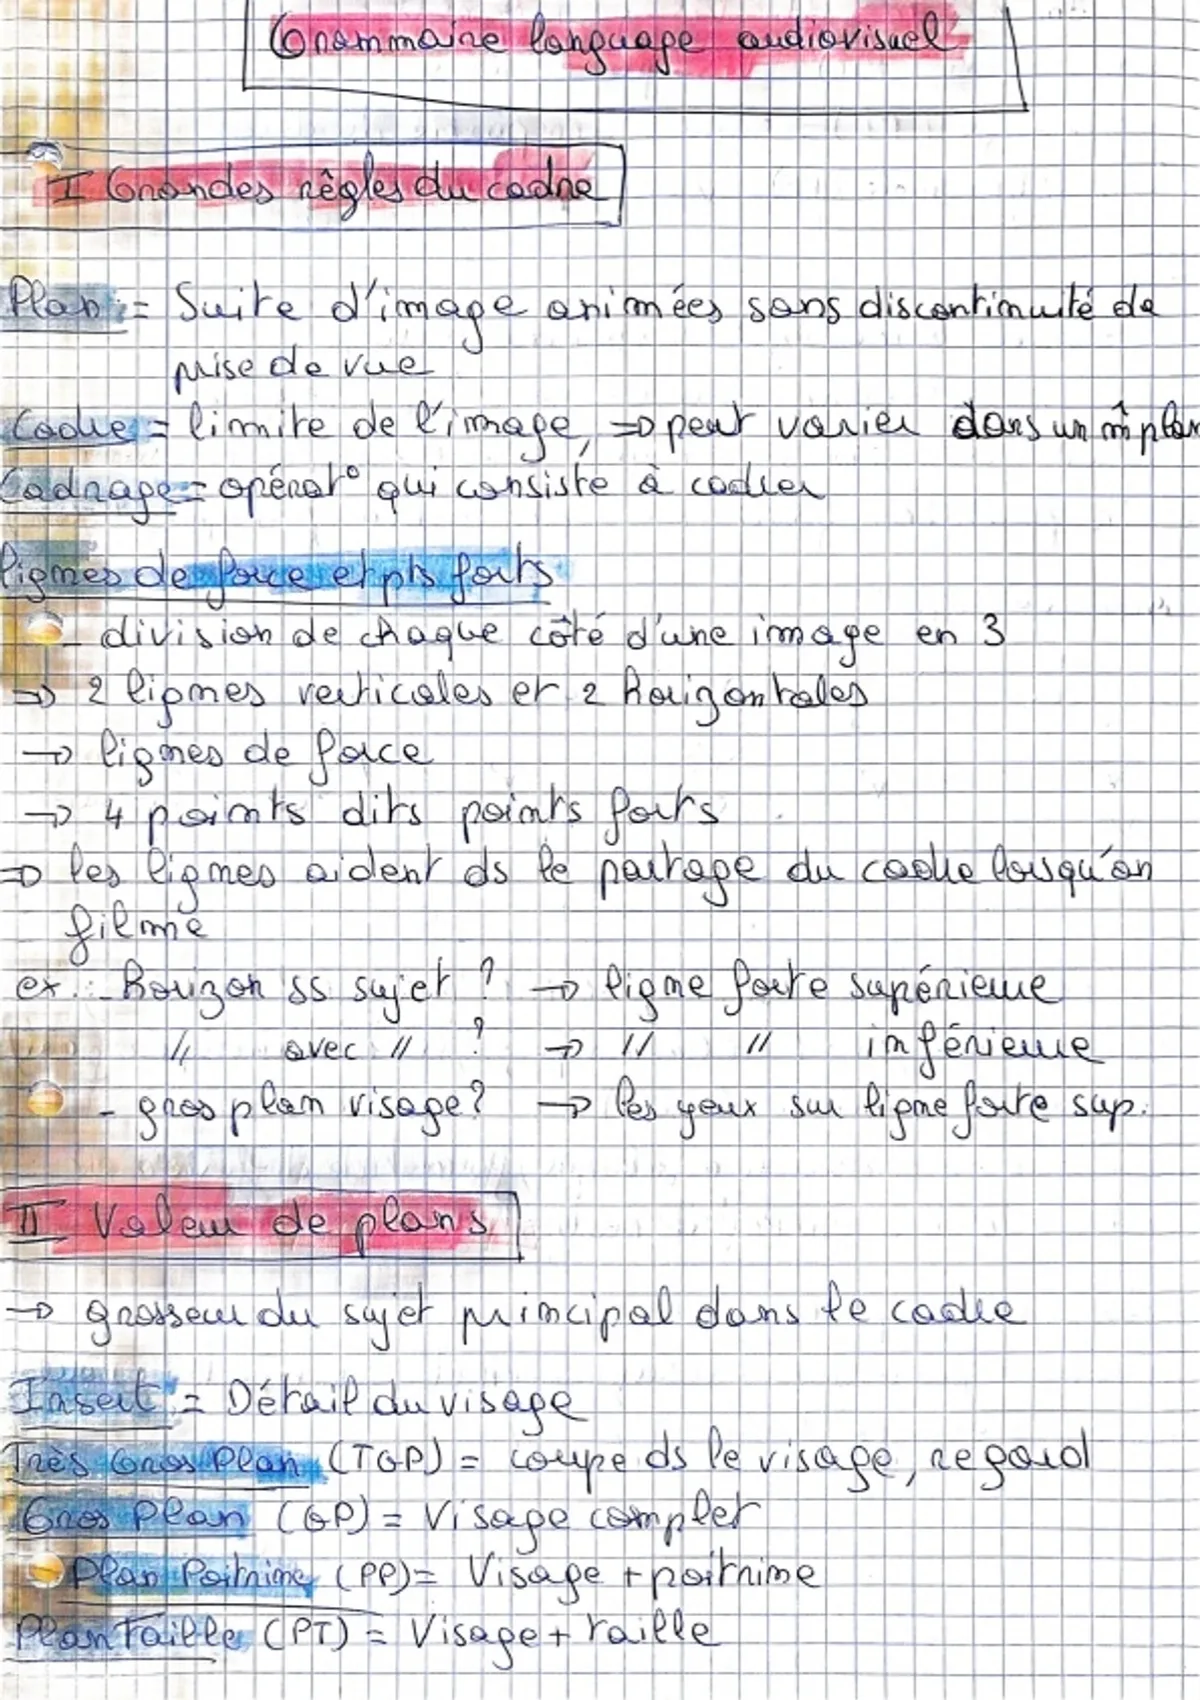 Grammaire language audiovisuel
I Grandes rêgles du cadre
Plan = Suite d'image animées sans discontinuité de
prise de vue
Cadre = limite de l'image, => peut varier dans un m̂ plan
Cadrage = opérat° qui consiste à cadrer
lignes de force et pts forts
- division de chaque côté d'une image en 3
=> 2 lignes verticales et 2 horizontales
-> lignes de force
-> 4 points dits points forts
=> les lignes aident ds le partage du cadre lorsqu'on
filme
ex : - Horizon ss sujet ? -> ligne forte supérieure
// avec // ? -> // // inférieure
- gros plan visage ? -> les yeux sur ligne forte sup.
II Valeur de plans
-> grosseur du sujet principal dans le cadre
Insert = Détail du visage
Très Gros Plan (TGP) = coupe ds le visage, regard
Gros Plan (GP) = Visage complet
Plan Poitrine (PP) = Visage + poitrine
Plan Taille (PT) = Visage + taille